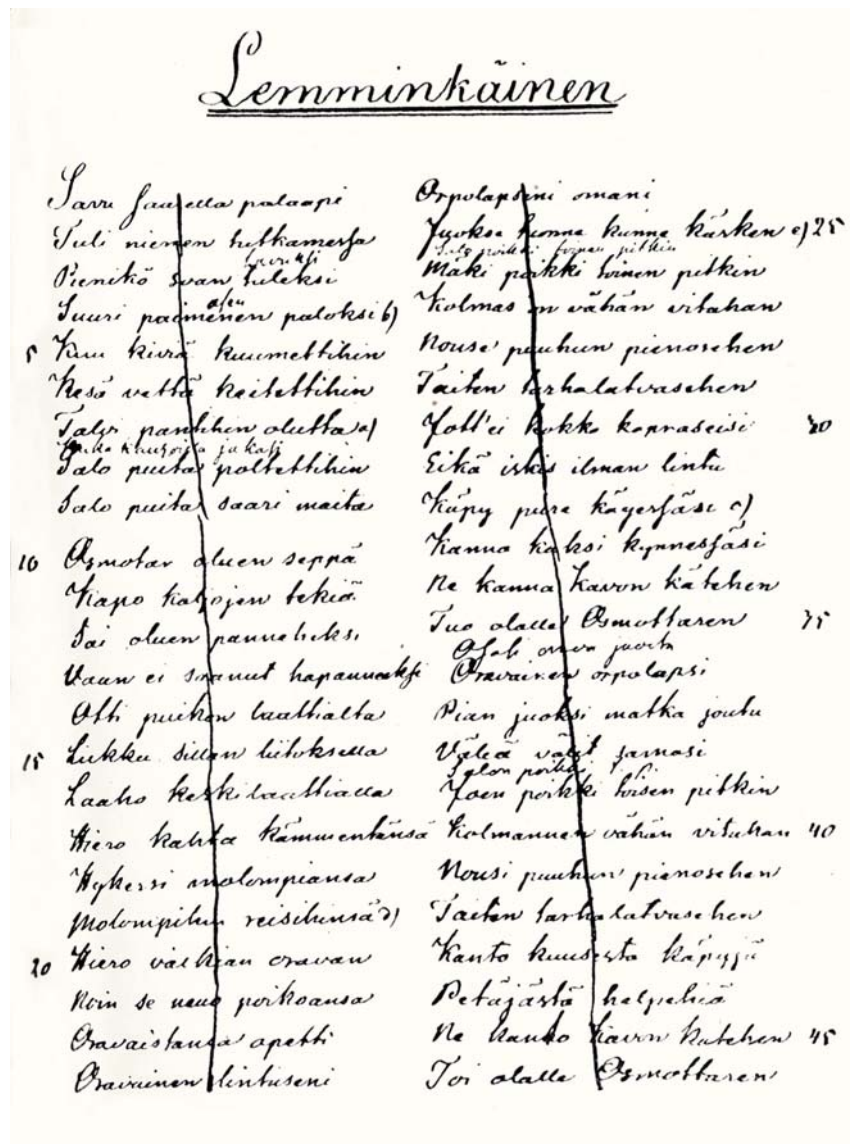 Lemminkäinen
Savu saarella palaapi
Tuli niemen hutkamessa
sovaksi
Pienikö sovan tuleksi
olen
Suuri paimenen paloksi b)
5 Kuu kiviä kuumettihin
Kesä vettä keitettihin
Talvi pantihin olutta a)
ja kaksi
Salo puita poltettihin
Salo puita saari maita
10 Osmotar oluen seppä
Kapo kaljojen tekiä
Sai oluen panneheksi
Vaan ei saanut hapanneeksi
Otti puikon laattialta
15 Liikku sillan liitoksella
Laaho keskilaattialla
Hiero kahta kämmentänsä
Hykersi molompiansa
Molompihin reisihinsä d)
20 Hiero valkian oravan
Noin se neuo poikoansa
Oravaistansa opetti
Oravainen lintuseni
Orpolapseni omani
Juokse tuonne kunne käsken e) 25
Salo poikki toinen pitkin
Mäki poikki toinen pitkin
Kolmas on vähän vitahan
Nouse puuhun pienosehen
Taiten tarhalatvasehen
Jott'ei kokko kopraseisi 30
Eikä iskis ilman lintu
Käpy pure käyessäsi c)
Kanna kaksi kynnessäsi
Ne kanna Kavon kätehen
Tuo olalle Osmottaren 35
juosta
Oravainen orpolapsi
Pian juoksi matka joutu
Väliä välit samosi
Salon poikki
Joen poikki toisen pitkin
Kolmannen vähän vitahan 40
Nousi puuhun pienosehen
Taiten tarhalatvasehen
Kanto kuusesta käpyjä
Petäjästä helpehiä
Ne kanto Kavon kätehen 45
Toi olalle Osmottaren